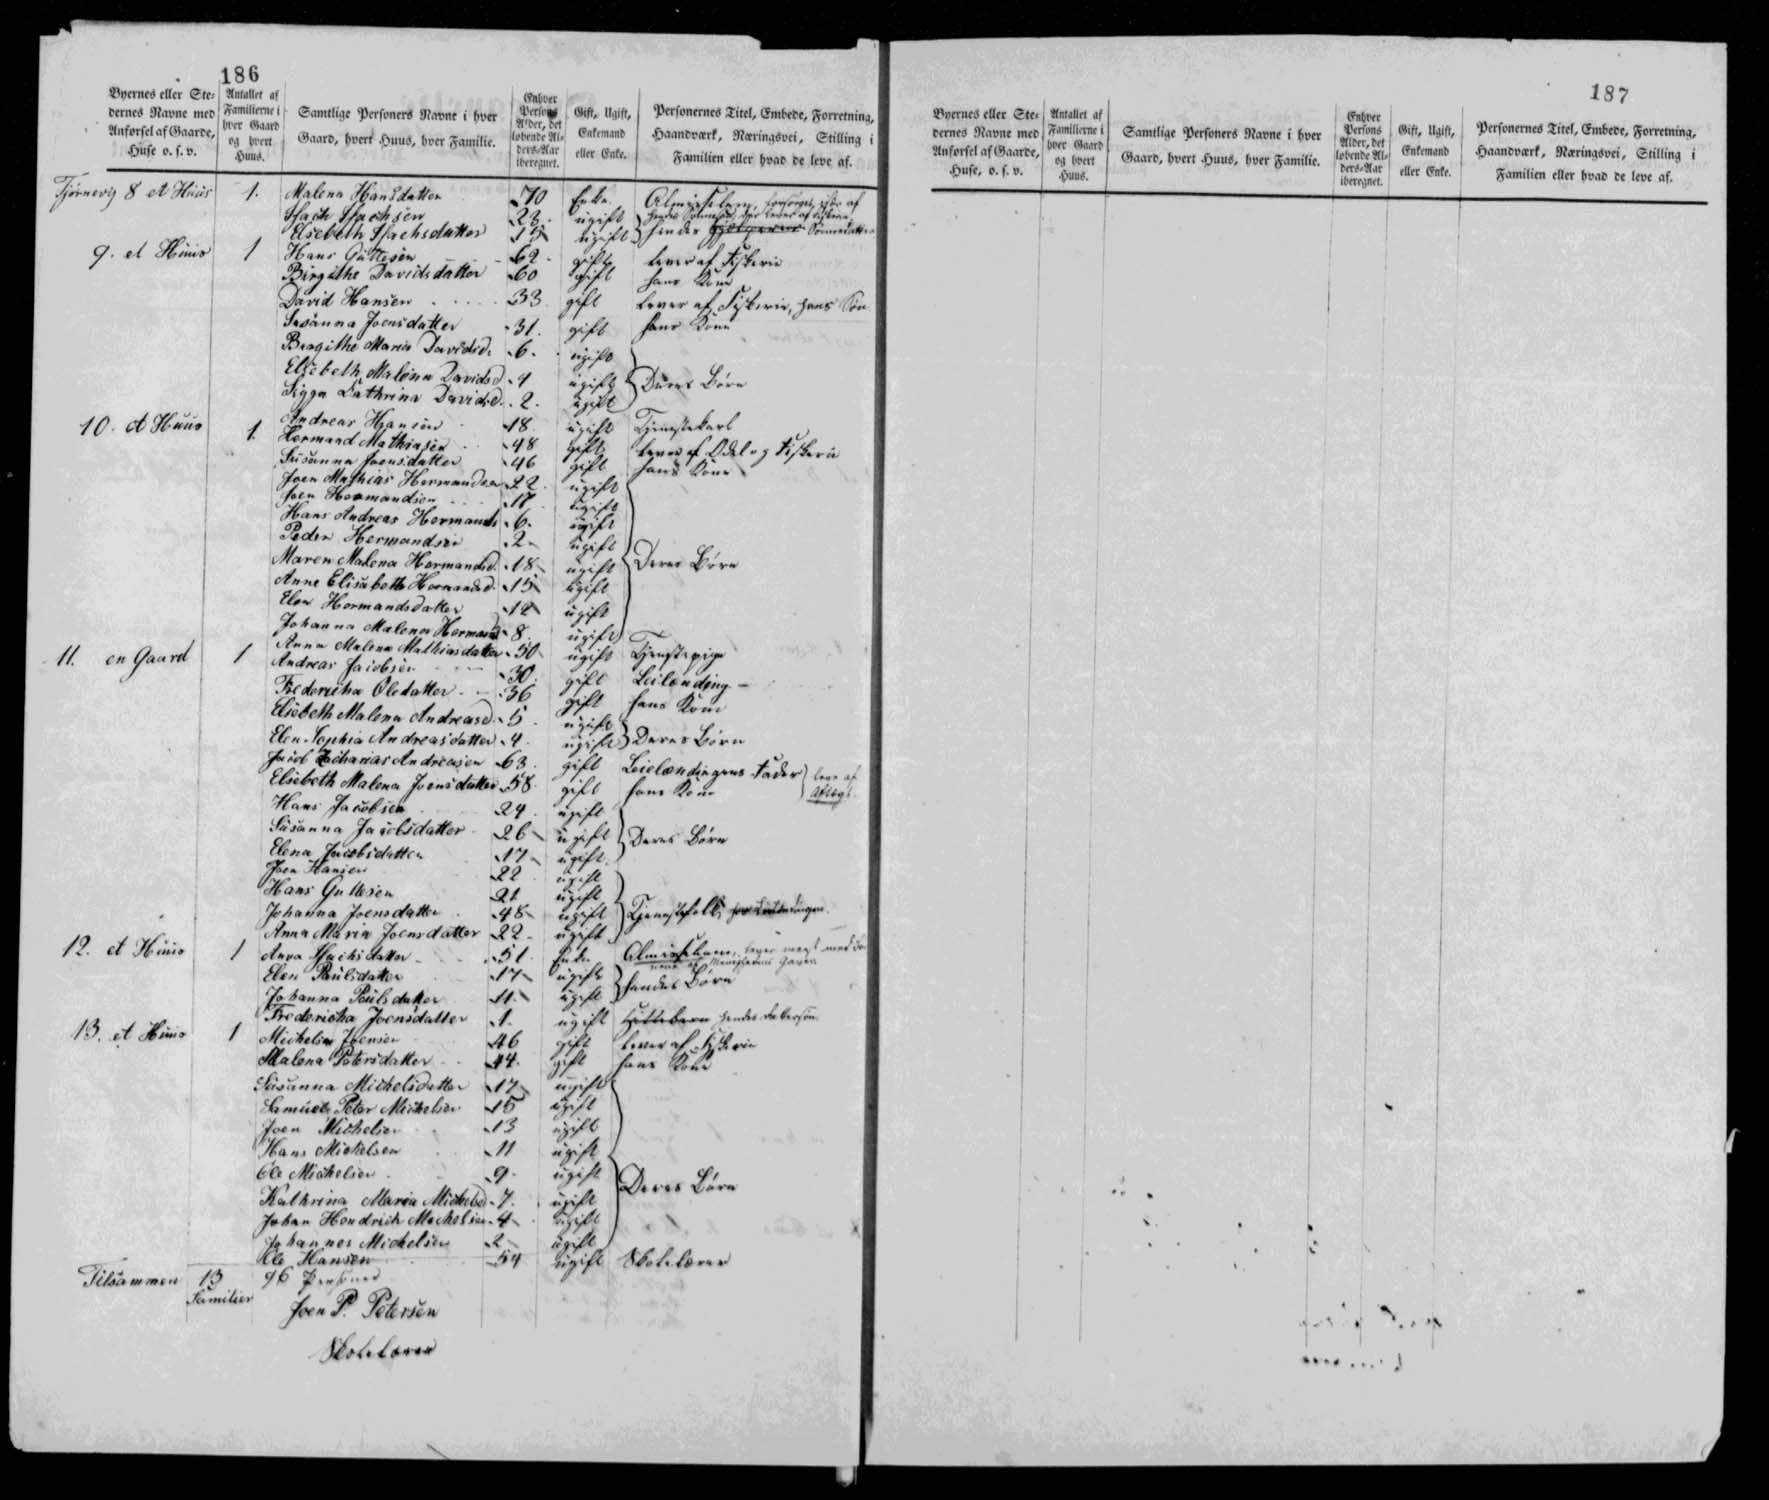 186
Byernes eller Stedernes Navne med Anførsel af Gaarde, Huse o. s. v. | Antallet af Familierne i hver Gaard og hvert Huus. | Samtlige Personers Navne i hver Gaard, hvert Huus, hver Familie. | Enhver Persons Alder, det løbende Alders-Aar iberegnet. | Gift, Ugift, Enkemand eller Enke. | Personernes Titel, Embede, Forretning, Haandværk, Næringsvei, Stilling i Familien eller hvad de leve af.
Tjørnevig 8 et Huus 1. Malena Hansdatter 70 Enke Almisselem,
Isach Isachsen 23 ugift
Elsebeth Isachsdatter 15 ugift hendes Sønnedatter
9. et Huus 1 Hans Guttesen 62 gift lever af Fiskerie
Birgithe Davidsdatter 60 gift hans Kone
David Hansen 33 gift lever af Fiskerie, hans Søn
Susanna Joensdatter 31. gift hans Kone
Birgithe Maria Davidsd. 6. ugift
Elsebeth Malena Davidsd 4 ugift Deres Børn
Sigga Cathrina Davidsd. 2. ugift
Andreas Hansen 18. ugift Tjenestekarl
10. et Huus 1. Hermand Mathiasen 48 gift lever af Odel og Fiskerie
Susanna Joensdatter 46 gift hans Kone
Joen Mathias Hermandsen 22. ugift
Joen Hermandsen 17 ugift
Hans Andreas Hermands 6. ugift
Peder Hermandsen 2 ugift
Maren Malena Hermandsd. 18 ugift Deres Børn
Anne Elisabeth Hermandsd. 15 ugift
Elen Hermandsdatter 12 ugift
Johanna Malena Hermandsd 8. ugift
Anna Malena Mathiasdatter 50 ugift Tjenstepige
11. en Gaard 1 Andreas Jacobsen 30. gift Leilænding
Fredericha Oledatter 36 gift hans Kone
Elsebeth Malena Andreasd. 5 ugift
Elen Sophia Andreasdatter 4 ugift Deres Børn
Jacob Zacharias Andreasen 63. gift Leilændingens Fader leve af
Elsebeth Malena Joensdatter 58. gift hans Kone Aftægt.
Hans Jacobsen 24 ugift
Susanna Jacobsdatter 26 ugift Deres Børn
Elena Jacobsdatter 17 ugift
Joen Hansen 22 ugift
Hans Guttesen 21 ugift
Johanna Joensdatter 48 ugift Tjenestefolk
Anna Maria Joensdatter 22 ugift
12. et Huus 1 Anna Isachsdatter 51 Enke Almisselem,
Elen Paulsdatter 17 ugift hendes Børn
Johanna Paulsdatter 11. ugift
Fredericha Joensdatter 1. ugift
13. et Huus 1 Michelsen Joensen 46 gift lever af Fiskerie
Malena Petersdatter 44. gift hans Kone
Susanna Michelsdatter 17 ugift
Samuel Peter Michelsen 15 ugift
Joen Michelsen 13 ugift
Hans Michelsen 11 ugift
Ole Michelsen 9 ugift Deres Børn
Kathrina Maria Michelsd 7. ugift
Johan Hendrich Michelsen 4 ugift
Johannes Michelsen 2 ugift
Ole Hansen 54 ugift Skolelærer
Tilsammen 13 Familier 96 Personer
Joen P. Petersen
Skolelærer
187
Byernes eller Stedernes Navne med Anførsel af Gaarde, Huse, o. s. v. | Antallet af Familierne i hver Gaard og hvert Huus. | Samtlige Personers Navne i hver Gaard, hvert Huus, hver Familie. | Enhver Persons Alder, det løbende Alders-Aar iberegnet. | Gift, Ugift, Enkemand eller Enke. | Personernes Titel, Embede, Forretning, Haandværk, Næringsvei, Stilling i Familien eller hvad de leve af.